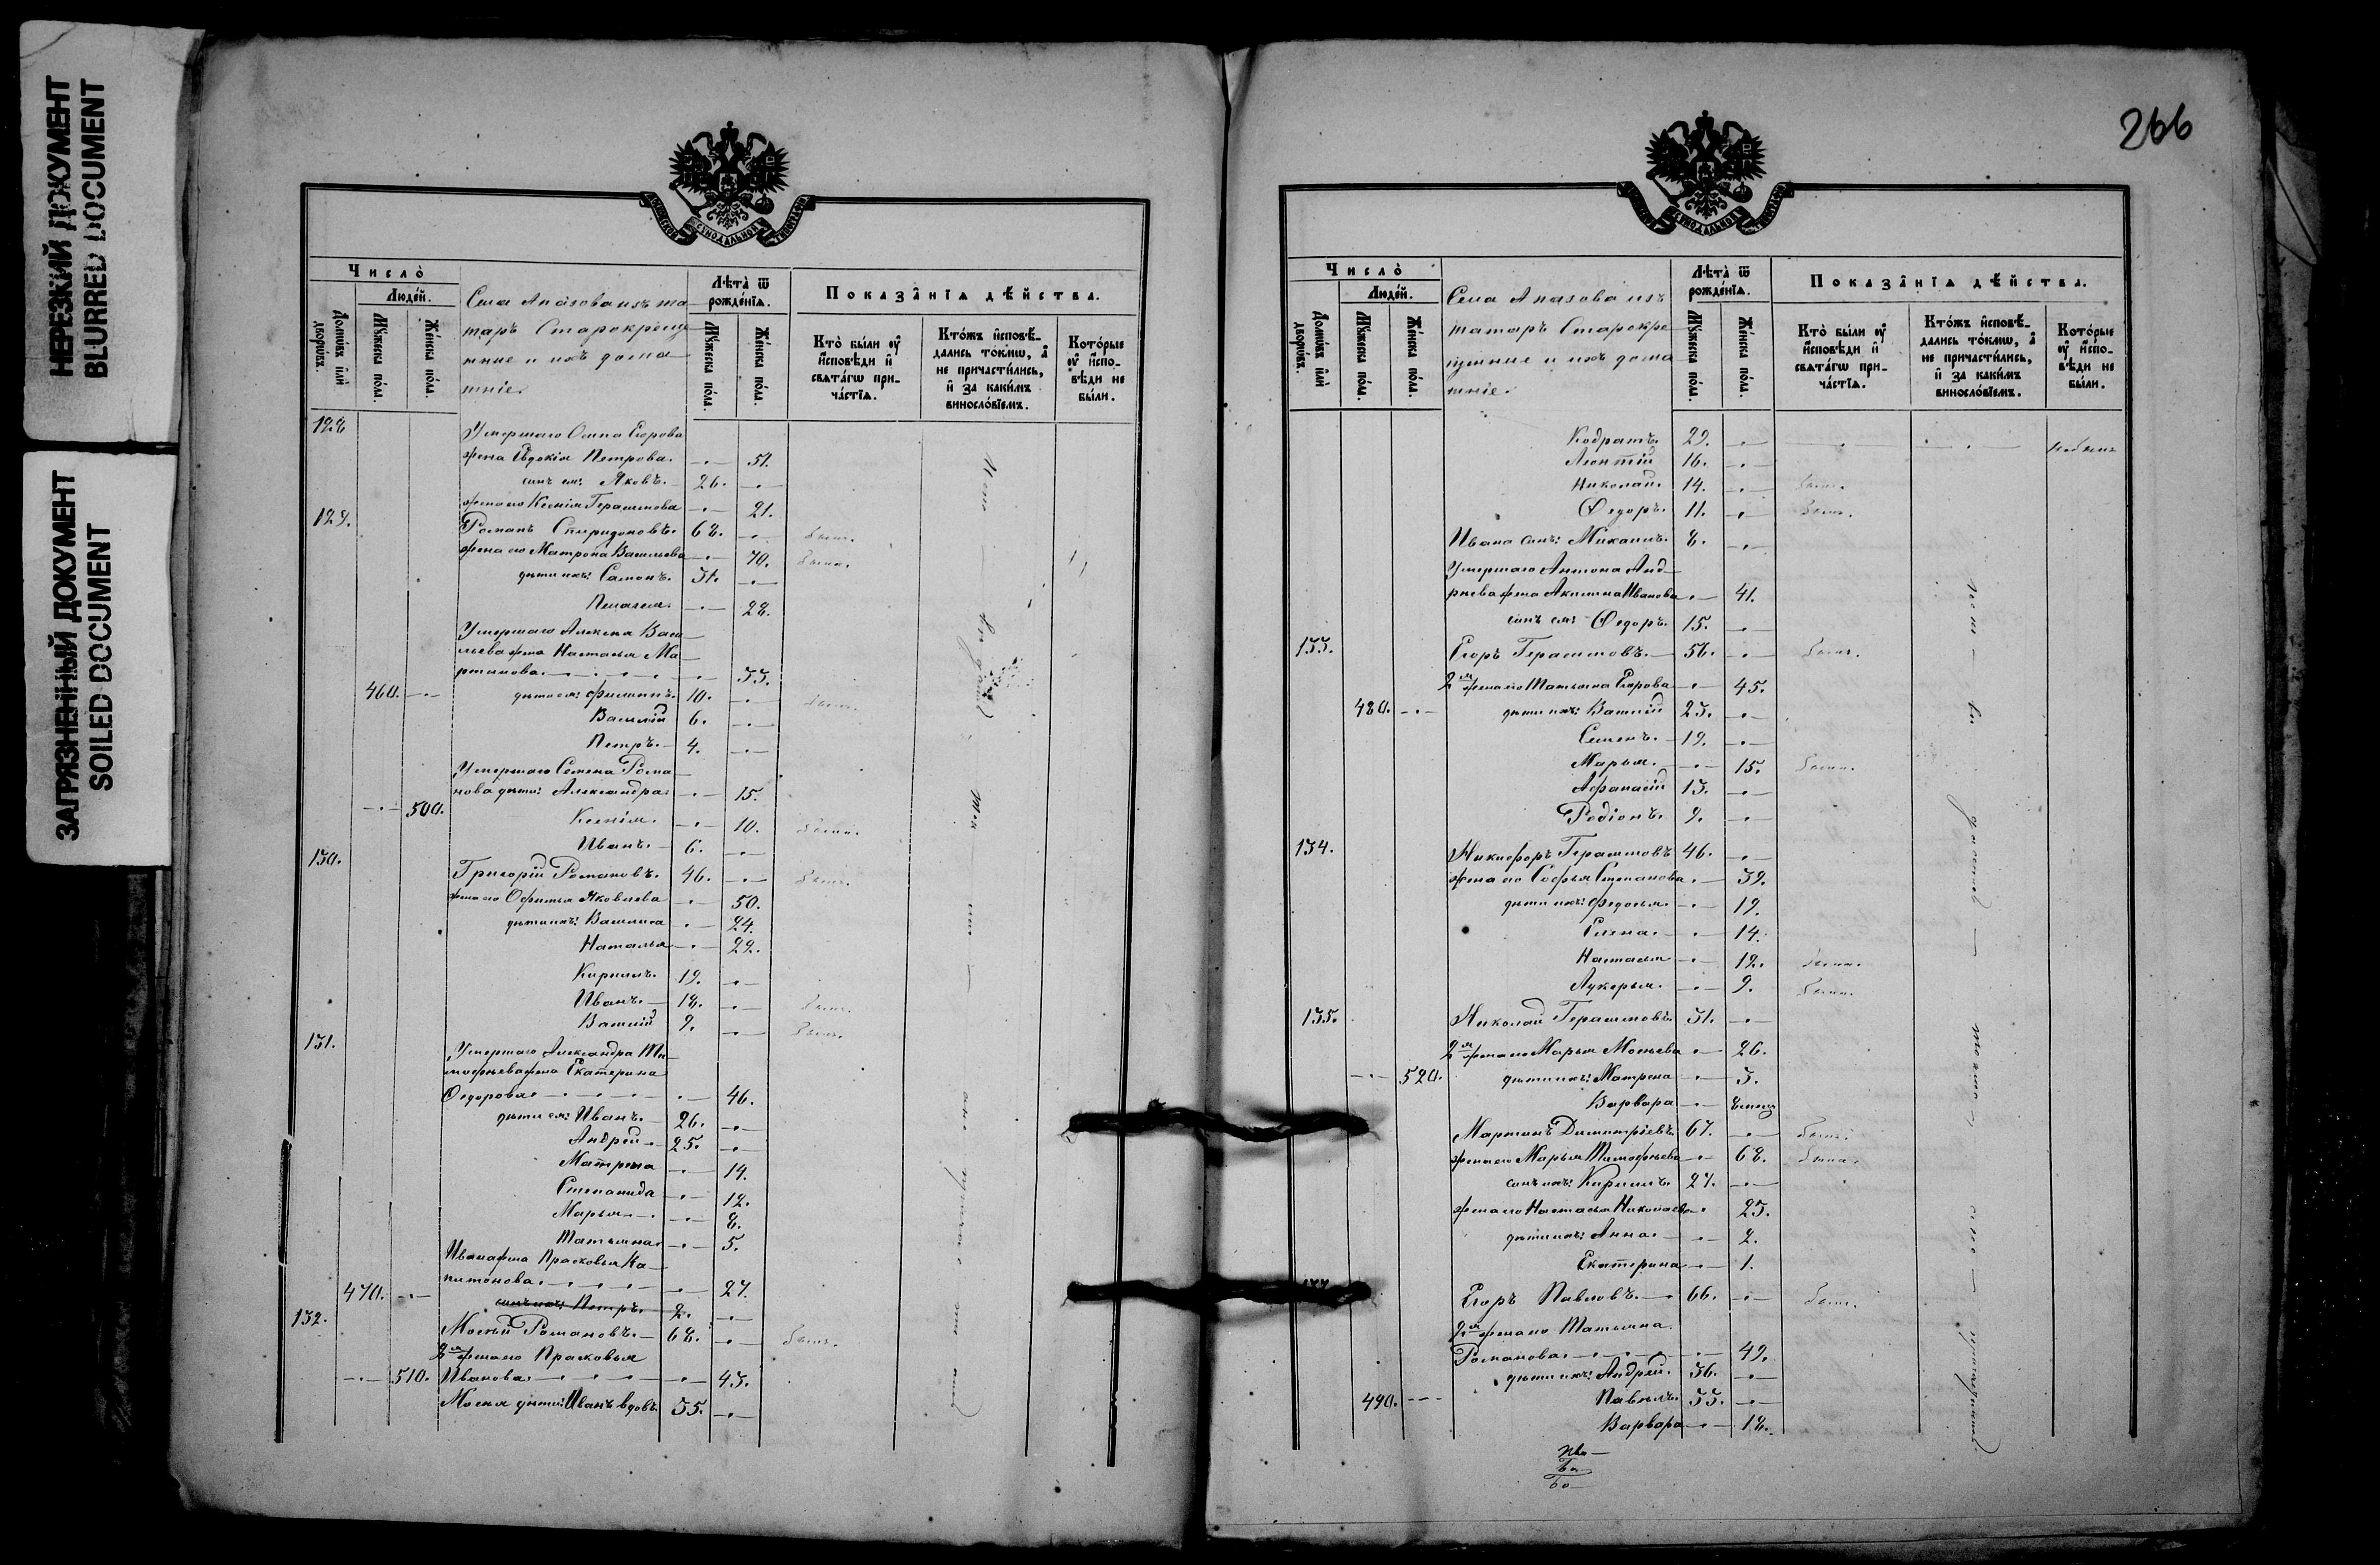 НЕРЕЗКИЙ ДОКУМЕНТ
BLURRED DOCUMENT
ЗАГРЯЗНЕННЫЙ ДОКУМЕНТ
SOILED DOCUMENT
Число̀
Домѡвъ и҆лѝ дворѡвъ.
Люде́й.
Мꙋ́жеска по́ла.
Же́нска по́ла.
Села Апазова изъ та
таръ Старокреще
нные и ихъ дома
шніе.
Лѣта̀ ѿ рожде́нїѧ.
Мꙋ́жеска по́ла.
Же́нска по́ла.
Показа̑нїѧ дѣ́йства.
Кто̀ бы́ли ᲂу҆ и҆спове́ди и҆ свѧта́гѡ прича́стїѧ.
Кто́жъ и҆сповѣ́дались то́кмѡ, а҆ не причасти́лись, и҆ за каки́мъ винослѡ́вїемъ.
Кото́рые ᲂу҆ и҆спо́вѣди не бы́ли.
128 Умершаго Осипа Егорова
жена Евдокія Петрова. — 51.
сынъ ея: Яковъ. 26. —
129. жена его Ксенія Герасимова — 21.
Романъ Спиридоновъ. 68. — былъ.
жена его Матрона Васильева — 70. была.
дѣти ихъ: Самонъ. 31. —
Пелагея. — 28.
Умершаго Алексея Васи
льева жена Настасья Ма
ртинова. — 33.
460. — дѣти ея: Филиппъ. 10. — былъ.
Василій 6. —
Петръ. 4. —
Умершаго Семена Рома
нова дѣти: Александра. — 15.
— 500. Ксенія. — 10. была.
Иванъ. 6. —
130. Григорій Романовъ. 46. — былъ.
жена его Офимья Яковлева — 50.
дѣти ихъ: Василиса — 24.
Наталья — 22.
Кирилъ. 19. —
Иванъ. 18. — былъ.
Василій 9. — былъ.
131. Умершаго Александра Ти
мофѣева жена Екатерина
Ѳедорова. — 46.
дѣти ея: Иванъ. 26. —
Андрей 25. —
Матрена — 14.
Степанида — 12.
Марья. — 8.
Татьяна. — 5.
Ивана жена Прасковья Ка
питонова. — 27.
470. — сынъ ихъ: Петръ. 2. —
132. Мосѣй Романовъ. 68. — былъ.
2я жена его Прасковья
— 510. Иванова. — 43.
Мосея дѣти: Иванъ вдовъ 35. —
266
Число̀
Домѡвъ и҆лѝ дворѡвъ.
Люде́й.
Мꙋ́жеска по́ла.
Же́нска по́ла.
Села Апазова изъ
татаръ Старокре
щенные и ихъ дома
шніе.
Лѣта̀ ѿ рожде́нїѧ.
Мꙋ́жеска по́ла.
Же́нска по́ла.
Показа̑нїѧ дѣ́йства.
Кто̀ бы́ли ᲂу҆ и҆спове́ди и҆ свѧта́гѡ прича́стїѧ.
Кто́жъ и҆сповѣ́дались то́кмѡ, а҆ не причасти́лись, и҆ за каки́мъ винослѡ́вїемъ.
Кото́рые ᲂу҆ и҆спо́вѣди не бы́ли.
Кодратъ. 29. —
Леонтій 16. —
Николай. 14. — былъ.
Ѳедоръ. 11. — былъ.
Ивана сынъ: Михаилъ. 8. —
Умершаго Антона Анд
рѣева жена Акилина Иванова — 41.
сынъ ея: Ѳедоръ. 15. —
133. Егоръ Герасимовъ. 56. — былъ.
2я жена его Татьяна Егорова — 45.
480. — дѣти ихъ: Василій 23. —
Семенъ. 19. —
Марья. — 15. была.
Афанасій 13. —
Родіонъ. 9. —
134. Никифоръ Герасимовъ 46. —
жена его Софья Степанова. — 39.
дѣти ихъ: Федосья. — 19.
Елена. — 14.
Настасья — 12. была.
Лукерья. — 9. была.
135. Николай Герасимовъ. 31. —
2я жена его Марья Мосѣева — 26.
— 520. дѣти ихъ: Матрена — 3.
Варвара —
Мартинъ Димитріевъ 67. — былъ.
жена его Марья Тимофѣева — 68. была.
сынъ ихъ: Кирилъ. 27. —
жена его Настасья Николаева. 25.
дѣти ихъ: Анна. — 2.
Екатерина — 1.
Егоръ Павловъ. 66. — былъ.
2я жена его Татьяна
Романова. — 49.
дѣти ихъ: Андрей. 36. —
490. — Павелъ. 33. —
Варвара — 18.